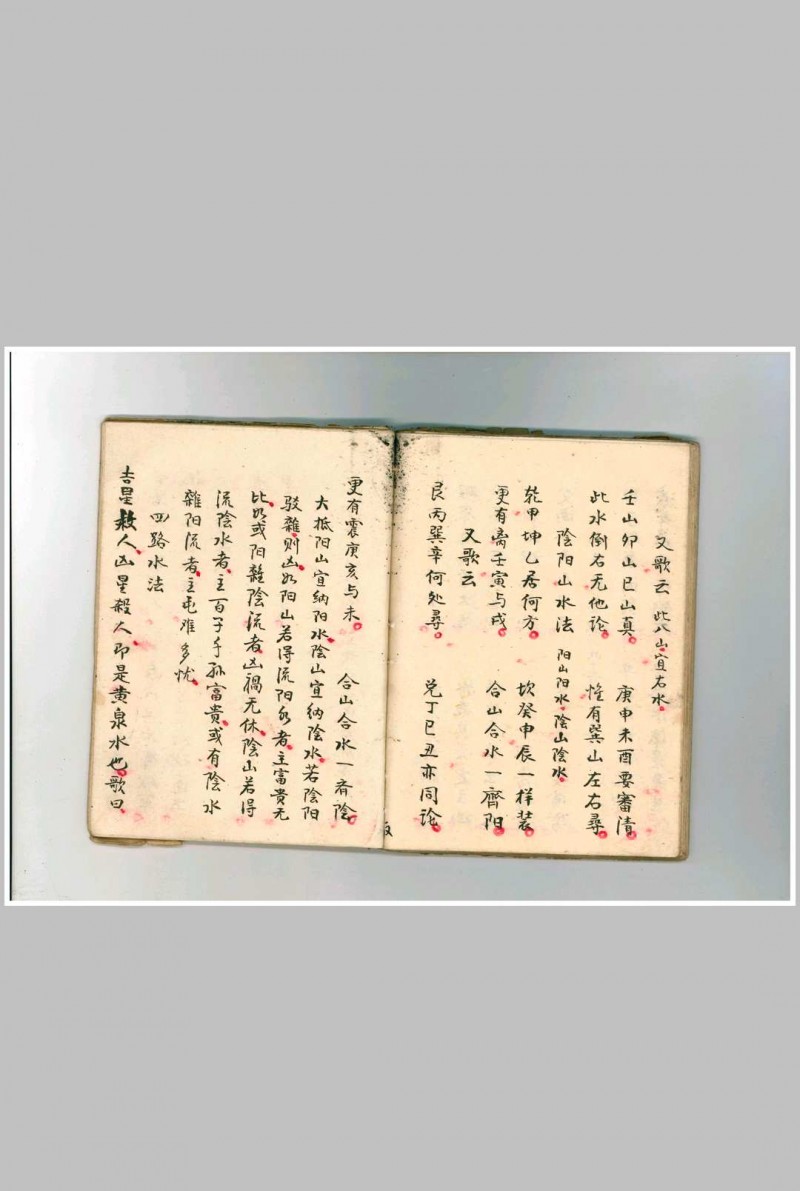 又歌云 此八山宜右水
壬山卯山巳山真 庚申未酉要審清
此水倒右无他論 惟有巽山左右尋
陰阳山水法 阳山阳水陰山陰水
乾甲坤乙居何方 坎癸申辰一样装
更有离壬寅与戌 合山合水一齊阳
又歌云
艮丙巽辛何处尋 兑丁巳丑亦同論
更有震庚亥与未 合山合水一斉陰
大抵阳山宜纳阳水陰山宜纳陰水若陰阳
驳雜则凶如阳山若得流阳水者主富貴无
比如或阳雜陰流者凶禍无休陰山若得
流陰水者主百子千孙富貴或有陰水
雜阳流者主屯难多忧
四路水法
吉星救人凶星殺人即是黄泉水也歌曰